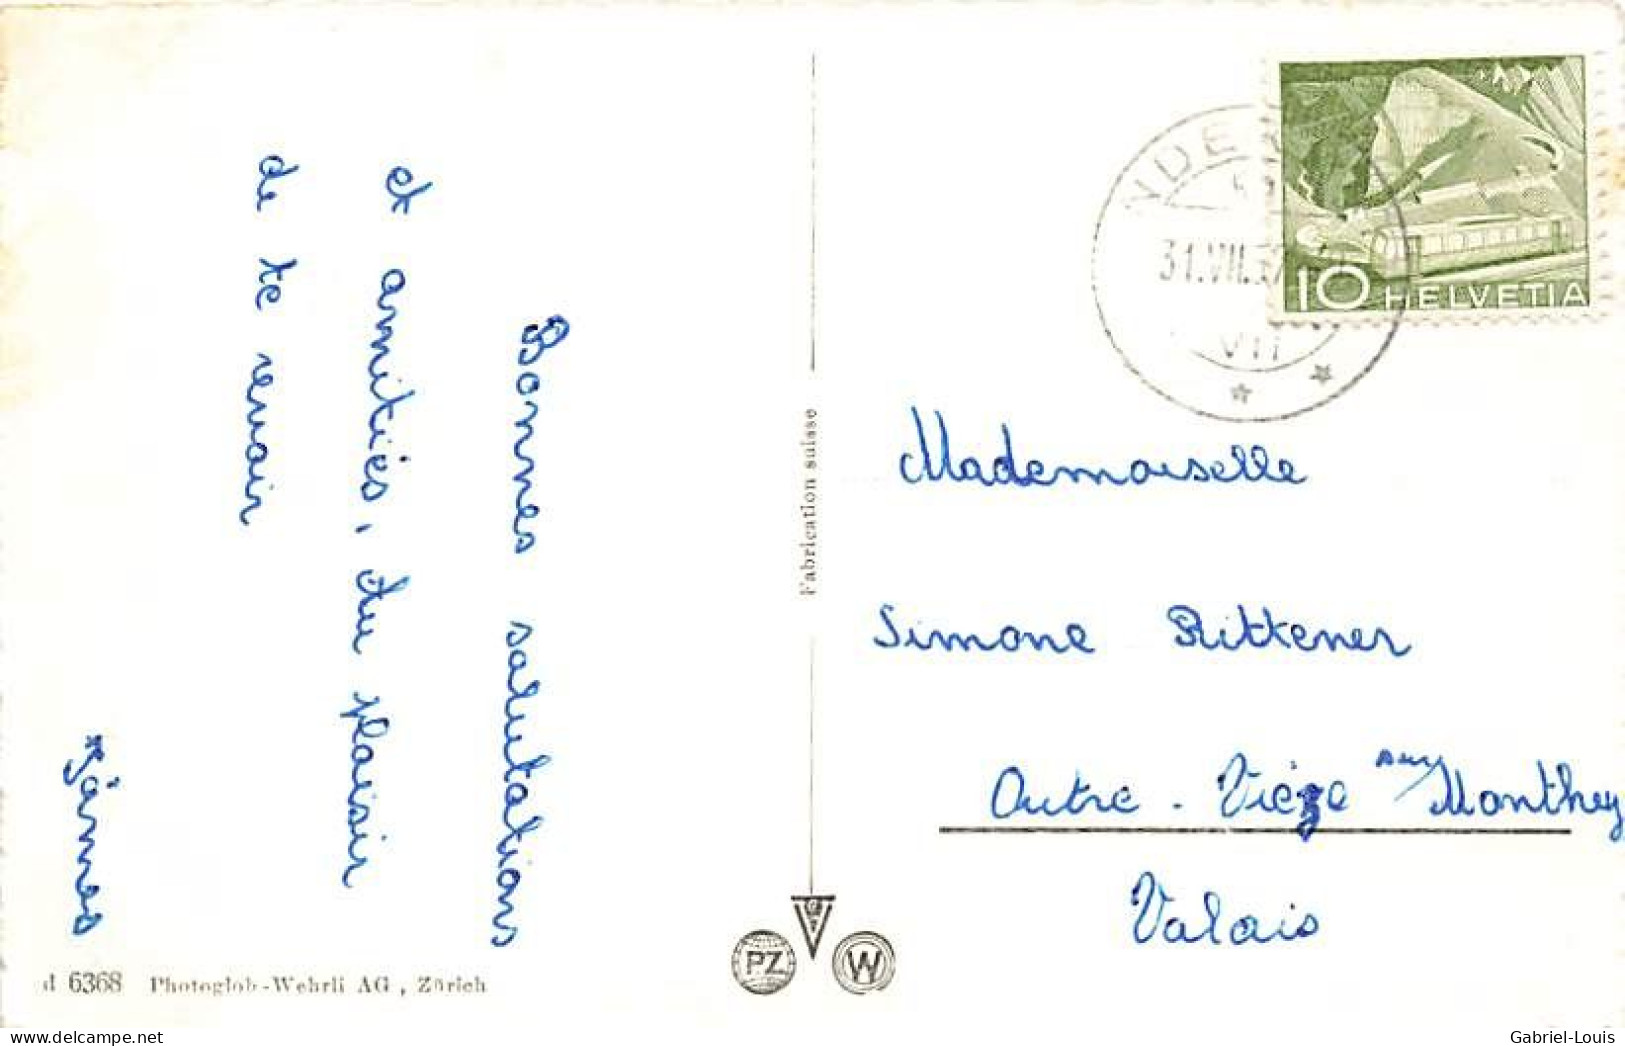 Bonnes salutations
et amitiés, du plaisir
de te revoir
James
d 6368 Photoglob-Wehrli AG, Zürich
Fabrication suisse
PZ
W
31.VII.57
VII
10 HELVETIA
Mademoiselle
Simone Rittener
Outre-Viéze sur Monthey
Valais
www.delcampe.net
Gabriel-Louis